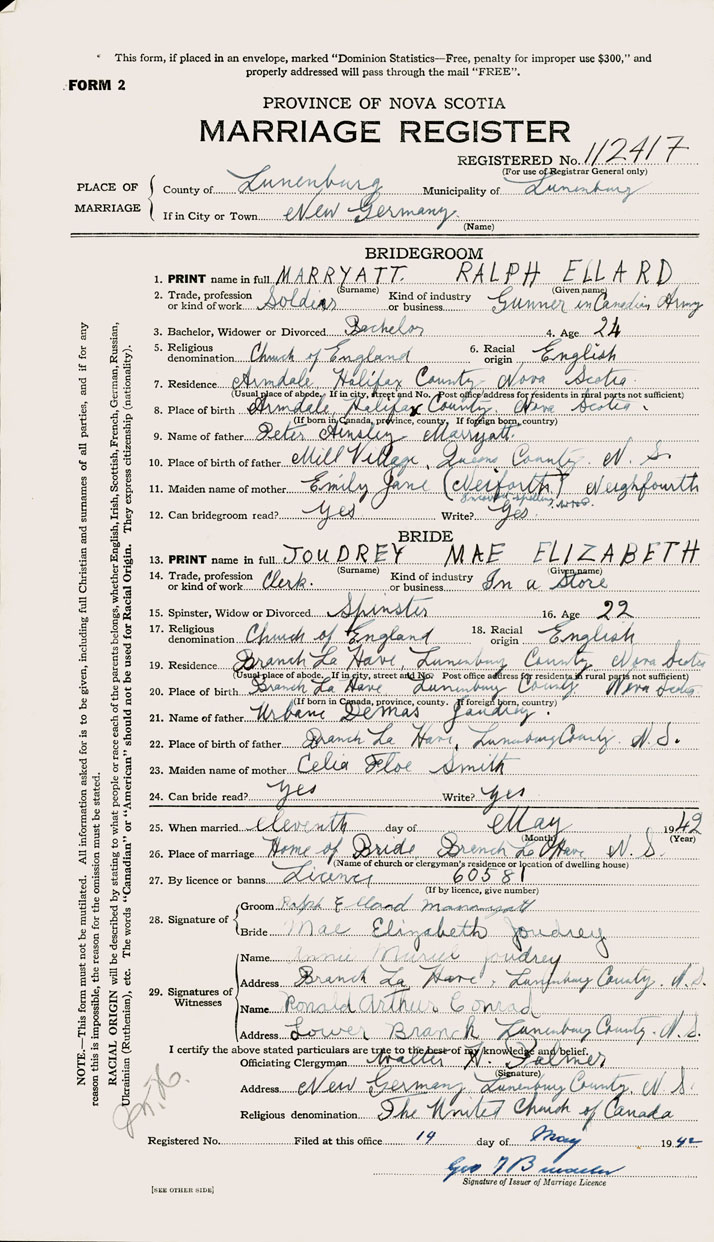 This form, if placed in an envelope, marked "Dominion Statistics—Free, penalty for improper use $300," and
properly addressed will pass through the mail "FREE".
FORM 2
PROVINCE OF NOVA SCOTIA
MARRIAGE REGISTER
REGISTERED No. 112417
(For use of Registrar General only)
PLACE OF MARRIAGE
County of Lunenburg Municipality of Lunenburg
If in City or Town New Germany
(Name)
BRIDEGROOM
1. PRINT name in full MARRYATT. RALPH ELLARD
(Surname) (Given name)
2. Trade, profession or kind of work Soldier Kind of industry or business Gunner in Canadian Army
3. Bachelor, Widower or Divorced Bachelor 4. Age 24
5. Religious denomination Church of England 6. Racial origin English
7. Residence Armdale Halifax County Nova Scotia.
(Usual place of abode. If in city, street and No. Post office address for residents in rural parts not sufficient)
8. Place of birth Armdale Halifax County, Nova Scotia.
(If born in Canada, province, county. If foreign born, country)
9. Name of father Peter Ainsley Marryatt.
10. Place of birth of father Mill Village, Queens County. N. S.
11. Maiden name of mother Emily Jane (Neiforth) Neighfourth
spelling
12. Can bridegroom read? Yes Write? Yes.
BRIDE
13. PRINT name in full JOUDREY MAE ELIZABETH
(Surname) (Given name)
14. Trade, profession or kind of work Clerk. Kind of industry or business In a Store
15. Spinster, Widow or Divorced Spinster 16. Age 22
17. Religious denomination Church of England 18. Racial origin English
19. Residence Branch La Have, Lunenburg County, Nova Scotia
(Usual place of abode. If in city, street and No. Post office address for residents in rural parts not sufficient)
20. Place of birth Branch La Have Lunenburg County Nova Scotia
(If born in Canada, province, county. If foreign born, country)
21. Name of father Urbane Demas Joudrey.
22. Place of birth of father Branch La Have, Lunenburg County. N. S.
23. Maiden name of mother Celia Floe Smith
24. Can bride read? Yes Write? Yes
25. When married eleventh day of May 1942
(Month) (Year)
26. Place of marriage Home of Bride, Branch La Have, N. S.
(Name of church or clergyman's residence or location of dwelling house)
27. By licence or banns Licence 60581
(If by licence, give number)
28. Signature of
Groom Ralph Ellard Marryatt
Bride Mae Elizabeth Joudrey
29. Signatures of Witnesses
Name Annie Muriel Joudrey
Address Branch La Have, Lunenburg County. N. S.
Name Ronald Arthur Conrad
Address Lower Branch Lunenburg County. N. S.
I certify the above stated particulars are true to the best of my knowledge and belief.
Officiating Clergyman Walter N. Palmer
(Signature)
Address New Germany Lunenburg County, N. S.
Religious denomination The United Church of Canada
Registered No. Filed at this office 19 day of May 1942
Geo
Signature of Issuer of Marriage Licence
[SEE OTHER SIDE]
NOTE.—This form must not be mutilated. All information asked for is to be given, including full Christian and surnames of all parties, and if for any
reason this is impossible, the reason for the omission must be stated.
RACIAL ORIGIN will be described by stating to what people or race each of the parents belongs, whether English, Irish, Scottish, French, German, Russian,
Ukrainian (Ruthenian), etc. The words "Canadian" or "American" should not be used for Racial Origin. They express citizenship (nationality).